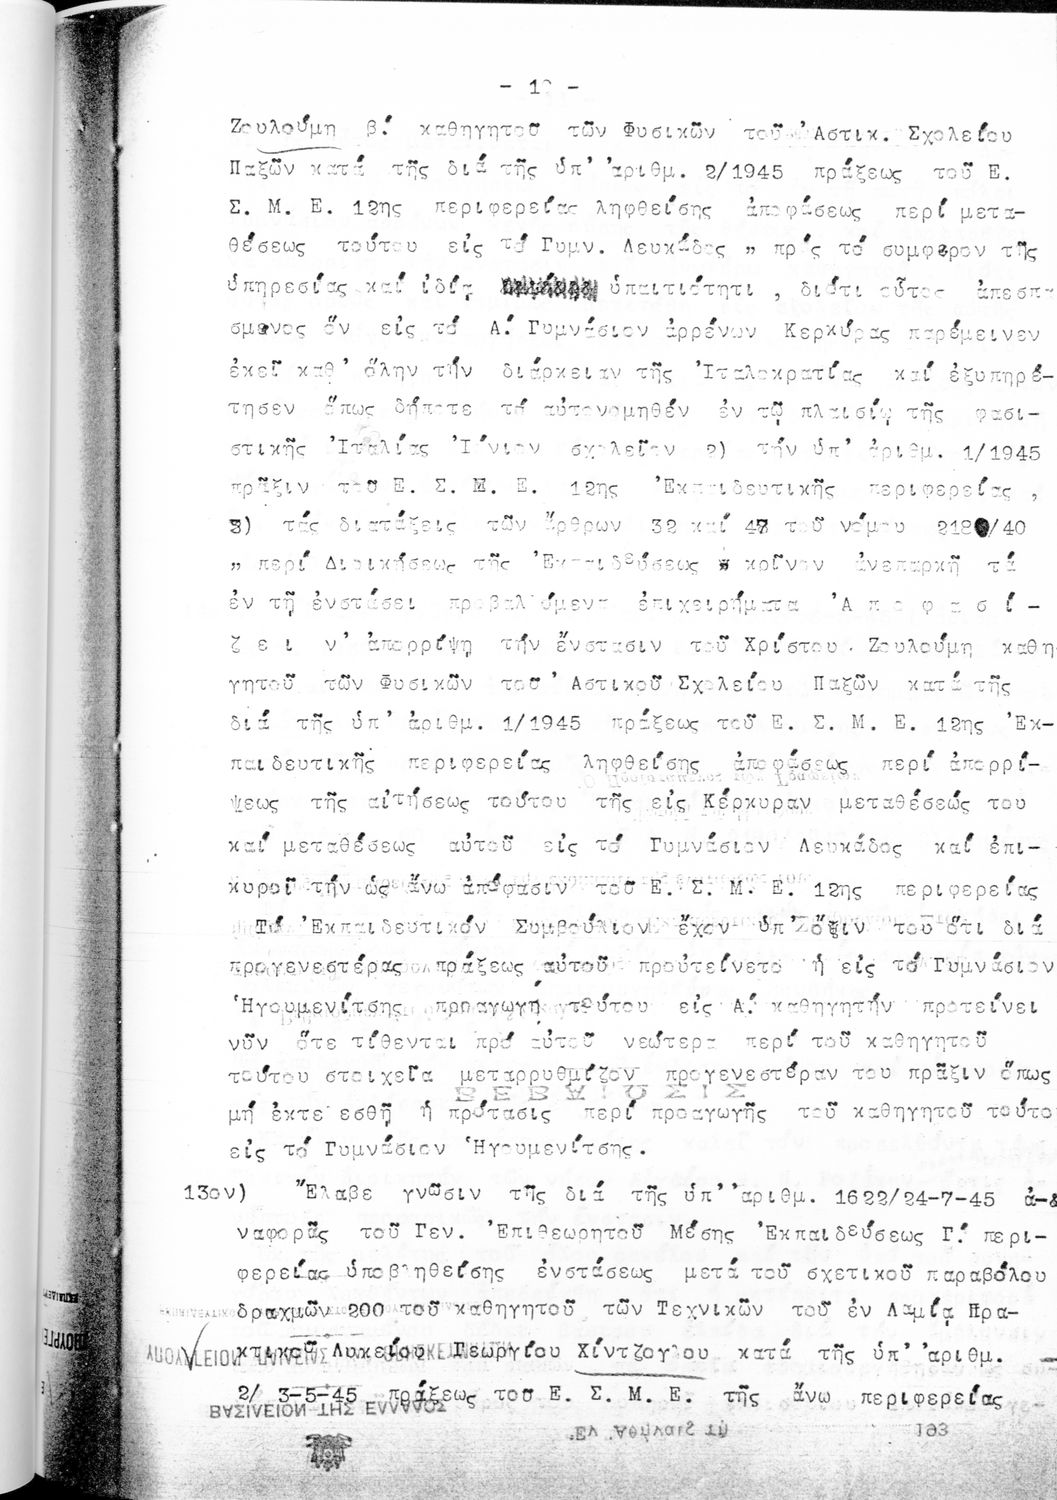 Ζουλούμη β΄ καθηγητοῦ τῶν Φυσικῶν τοῦ Ἀστικ. Σχολείου
Παξῶν κατά τῆς διά τῆς ὑπ' ἀριθμ. 2/1945 πράξεως τοῦ Ε.
Σ. Μ. Ε. 12ης περιφερείας ληφθείσης ἀποφάσεως περί μετα-
θέσεως τούτου εἰς τό Γυμν. Λευκάδος „ πρός τό συμφερον τῆς
ὑπηρεσίας καί ἰδίᾳ ὑπαιτιότητι , διότι οὗτος ἀπεσπα
σμενος ὄν εἰς τό Α΄ Γυμνάσιον ἀρρένων Κερκύρας παρέμεινεν
ἐκεῖ καθ' ὅλην τήν διάρκειαν τῆς Ἰταλοκρατίας καί ἐξυπηρέ-
τησεν ὅπως δήποτε τό αὐτονομηθέν ἐν τῷ πλαισίῳ τῆς φασι-
στικῆς Ἰταλίας Ἰόνιον σχολεῖον 2) τήν ὑπ' ἀριθμ. 1/1945
πρᾶξιν τοῦ Ε. Σ. Μ. Ε. 12ης Ἐκπαιδευτικῆς περιφερείας ,
3) τάς διατάξεις τῶν ἄρθρων 32 καί 47 τοῦ νόμου 2180/40
„ περί Διοικήσεως τῆς Ἐκπαιδεύσεως " κρῖνον ἀνεπαρκῆ τά
ἐν τῇ ἐνστάσει προβαλλόμενα ἐπιχειρήματα Ἀ π ο φ α σ ί -
ζ ε ι ν' ἀπορρίψῃ τήν ἔνστασιν τοῦ Χρίστου Ζουλούμη καθη
γητοῦ τῶν Φυσικῶν του Ἀστικοῦ Σχολείου Παξῶν κατά τῆς
διά τῆς ὑπ' ἀριθμ. 1/1945 πράξεως τοῦ Ε. Σ. Μ. Ε. 12ης Ἐκ-
παιδευτικῆς περιφερείας ληφθείσης ἀποφάσεως περί ἀπορρί-
ψεως τῆς αἰτήσεως τούτου τῆς εἰς Κέρκυραν μεταθέσεώς του
καί μεταθέσεως αὐτοῦ εἰς τό Γυμνάσιον Λευκάδος καί ἐπι-
κυροῖ τήν ὡς ἄνω ἀπόφασιν τοῦ Ε. Σ. Μ. Ε. 12ης περιφερείας
Τό Ἐκπαιδευτικόν Συμβούλιον ἔχον ὑπ' ὄψιν του ὅτι διά
προγενεστέρας πράξεως αὐτοῦ προὐτείνετο ἡ εἰς τό Γυμνάσιον
Ἡγουμενίτσης προαγωγή τούτου εἰς Α΄ καθηγητήν προτείνει
νῦν ὅτε τίθενται πρό αὐτοῦ νεώτερα περί τοῦ καθηγητοῦ
τούτου στοιχεῖα μεταρρυθμίζον προγενεστέραν του πρᾶξιν ὅπως
μή ἐκτελεσθῇ ἡ πρότασις περί προαγωγῆς τοῦ καθηγητοῦ τούτου
εἰς τό Γυμνάσιον Ἡγουμενίτσης.
13ον) Ἔλαβε γνῶσιν τῆς διά τῆς ὑπ' ἀριθμ. 1622/24-7-45 ἀ-
ναφορᾶς τοῦ Γεν. Ἐπιθεωρητοῦ Μέσης Ἐκπαιδεύσεως Γ΄ περι-
φερείας ὑποβληθείσης ἐνστάσεως μετά τοῦ σχετικοῦ παραβόλου
δραχμῶν 200 τοῦ καθηγητοῦ τῶν Τεχνικῶν τοῦ ἐν Λαμίᾳ Πρα-
κτικοῦ Λυκείου Γεωργίου Χίντζογλου κατά τῆς ὑπ' ἀριθμ.
2/ 3-5-45 πράξεως του Ε. Σ. Μ. Ε. τῆς ἄνω περιφερείας
ΒΑΣΙΛΕΙΟΝ ΤΗΣ ΕΛΛΑΔΟΣ
Ἐν Ἀθήναις τῇ 193